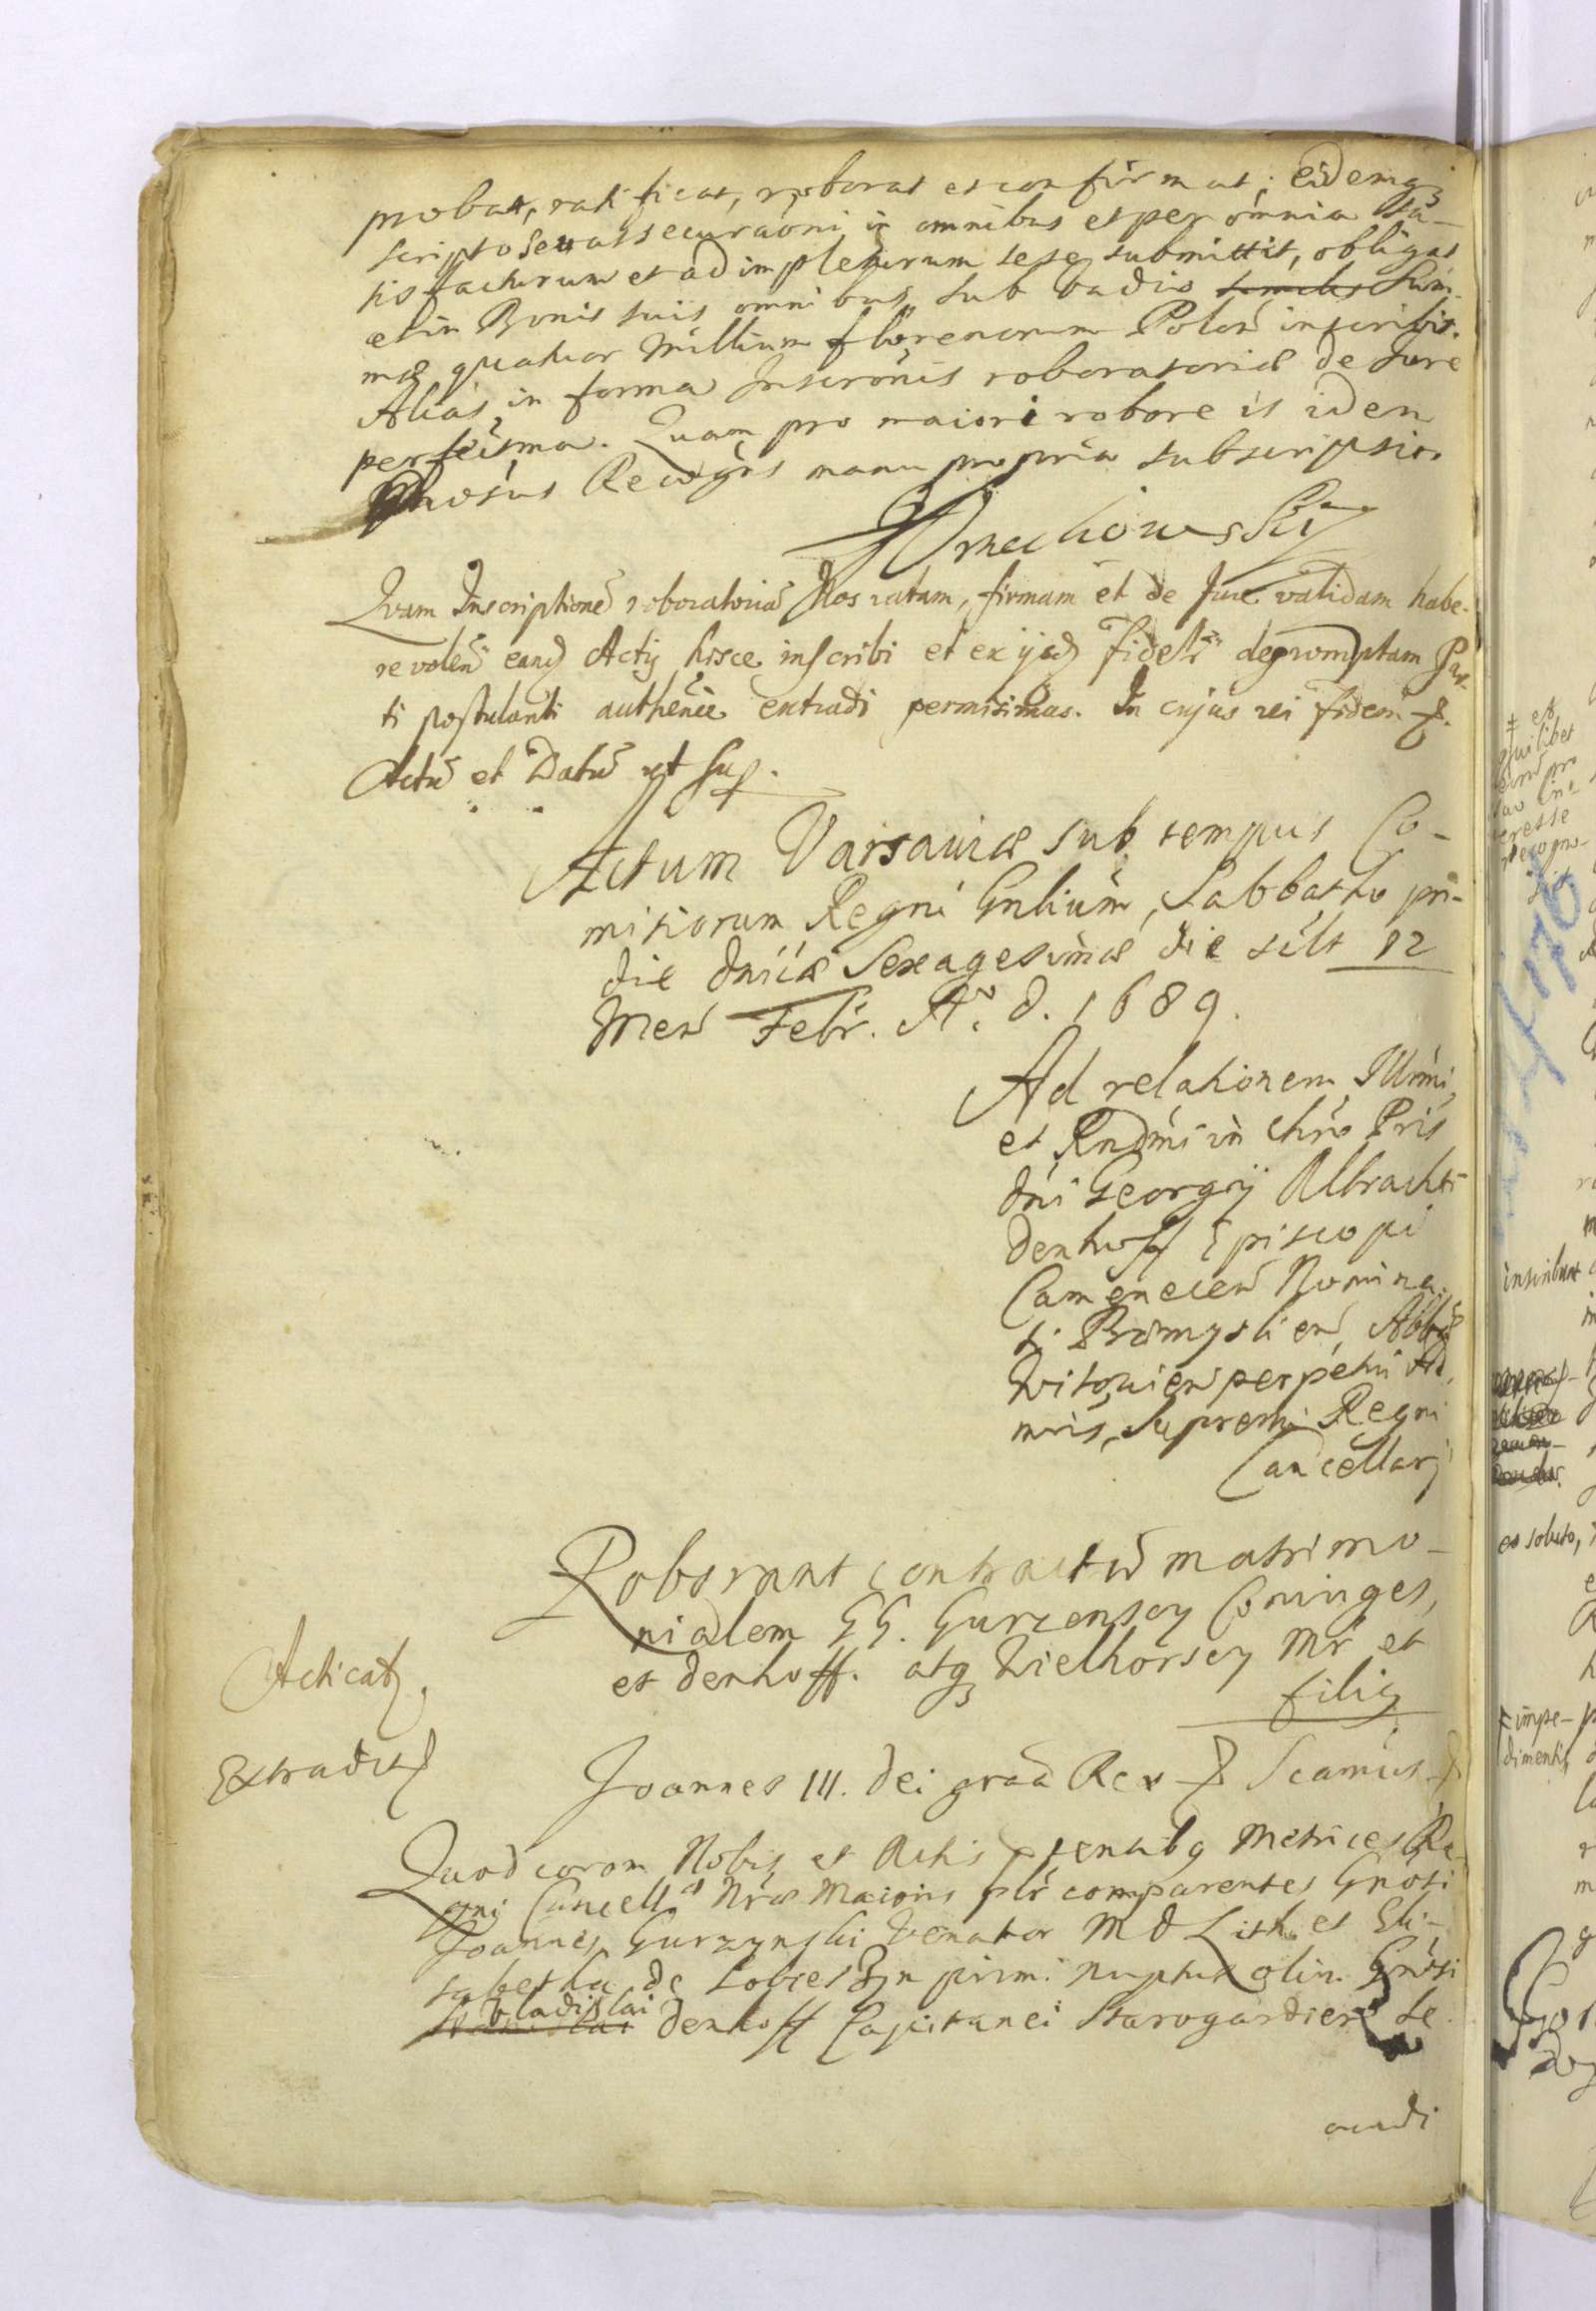 probat, ratificat, roborat et confirmat; eidemq3
scripto seu assecuraoni in omnibus et per omnia sa-
tisfacturum et adimpleturum sese submittit, obligat
et in Bonis suis omnibus sub vadio similis Sum-
mæ quatuor Millium florenorum Polon inscribit.
Alias in forma Inscronis roboratoriæ de Jure
perfecissima. Quam pro maiori robore is idem
Recogns manu propria subscripsit.
Quam Inscriptionē roboratoriā Nos ratam, firmam et de Jure validam habe-
re volen eand Actis hisce inscribi et ex ijsd fidelr depromptam Par-
ti postulanti authentice extradi permisimus. In cujus rei fidem
Actū et Datū ut sup.
Actum Varsaviæ sub tempus Co-
mitiorum Regni Gnlium, Sabbatho pri-
die dnicæ Sexagesimæ die scilt 12
Men Febr. A. d. 1689.
Ad relationem Illrmi
et Rndmi in Chro Pris
dni Georgij Albrachti
Denhoff Episcopi
Camenecen Nomina-
ti Prmyslien, Abbæ
Witovien perpetui Ad
mris, Supremi Regni
Cancellarj
Roborant contractū matrimo-
nialem GG. Gurzenscy Coniuges,
et Denhoff. atq3 Wielhorscy Mr et
filia
Acticat.
Extradit
Joannes III. Dei gratia Rex Scamus
Quod coram Nobis et Actis ptentibq Metrices Re-
gni Cancellæ Nræ Maioris plr comparentes Gnosi
Joannes Gurzynski Venator M D Lith et Eli-
sabetha de Lobes pirmi nuptus olim Gnosi
Vladislai
Denhoff Capitanei Starogardien se-
cundi
+ et
quilibet
eorū pro
suo in-
teresse
recogno-
inscribunt
es soluto,
+ impe-
dimentis